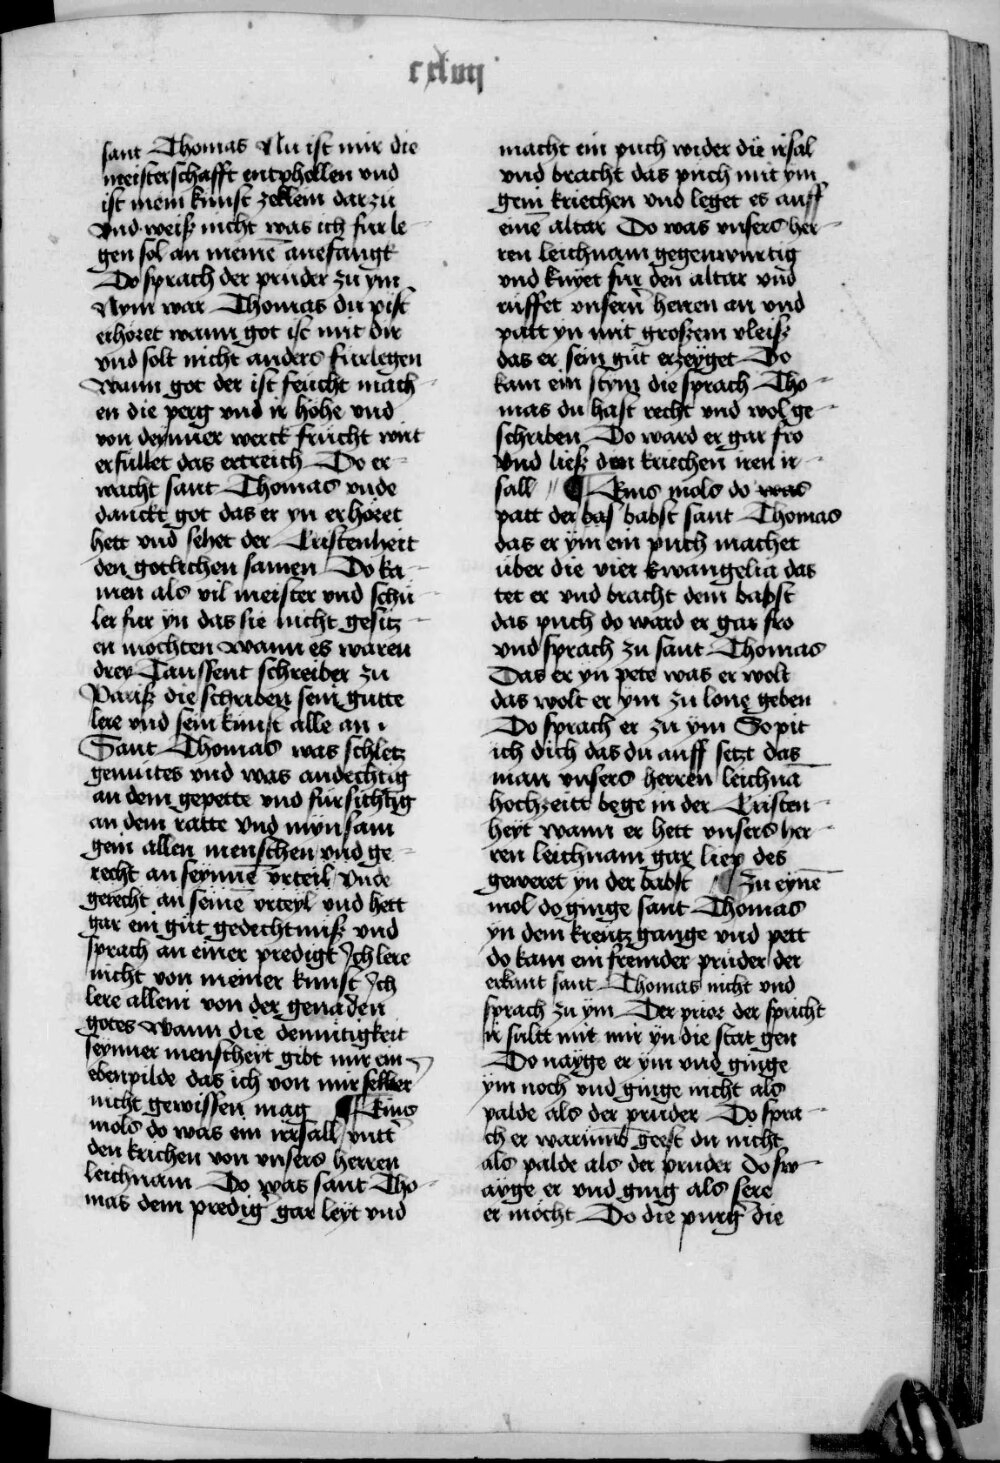 cxlviij
sant Thomas Nu ist mir die
meisterschafft entpholhen vnd
ist mein kunst zeklein dar zu
Vnd weiß nicht was ich fur le¬
gen sol an meinē anefangk
Do sprach der pruder zu ym
Nym war Thomas du pist
erhoret wann got ist mit dir
vnd solt nicht anders fürlegen
Wann got der ist feücht mach¬
en die perg vnd ir höhe vnd
von deynner werck frücht wirt
erfullet das ertreich Do er¬
wacht sant Thomas vnde
danckt got das er yn erhöret
hett vnd sehet der Cristenheit
den gotlichen samen Do ka¬
men als vil meister vnd schü¬
ler fur yn das sie nicht gesitz¬
en mochten Wann es waren
drey Taussent schreiber zu
Pariß die schriben sein gutte
lere vnd sein kunst alle an
Sant Thomas was schletz
gemütes vnd was andechtig
an dem gepette vnd fürsichtig
an dem ratte Vnd mynsam
gein allen menschen vnd ge¬
recht an seynnē vrteil vnde
gerecht an seinē vrteyl vnd hett
gar ein güt gedechtniß vnd
sprach an einer predigt Ich lere
nicht von meiner kunst Ich
lere allein von der genaden
gotes Wann die demütigkeit
seynner menscheyt gibt mir ein
ebenpilde das ich von mir selber
nicht gewissen mag ¶ Eins
mols do was ein irrsall vntt̄
den krichen von vnsers herren
leichnam Do was sant Tho¬
mas dem prediḡ gar leyt vnd
macht ein puch wider die irsal
vnd bracht das puch mit ym
gein kriechen vnd leget es auff
einē altar Do was vnsers her¬
ren leichnam gegenwurtig
vnd knyet fur den altar vnd
rüffet vnsern̄ herren an vnd
patt yn mit groszem vleiß
das er sein güt erzeyget Do
kam ein stym die sprach Tho¬
mas du hast recht vnd wol ge¬
schriben Do ward er gar fro
Vnd ließ den kriechen iren ir
sall ¶ Eins mols do was
patt der bas babst sant Thomas
das er ym ein puch machet
über die vier Ewangelia das
tet er vnd bracht dem babst
das puch do ward er gar fro
vnd sprach zu sant Thomas
Das er yn pete was er wolt
das wolt er ym zu lone geben
Do sprach er zu ym So pit
ich dich das du auff setzt das
man vnsers herren leichnā
hochzeitt bege in der Cristen¬
heyt wann er hett vnsers her¬
ren leichnam gar liep des
geweret yn der babst ¶ Zu eynē
mol do ginge sant Thomas
yn dem kreütz gange vnd pett
do kam ein fremder pruder der
erkant sant Thomas nicht vnd
sprach zu ym Der prior der spricht
ir sültt mit mir yn die stat gen
Do nayge er ym vnd ginge
ym noch vnd ginge nicht als
palde als der pruder Do spra¬
ch er warumb geest du nicht
als palde als der pruder Do sw¬
ayge er vnd ging als sere
er mocht Do die purḡ die